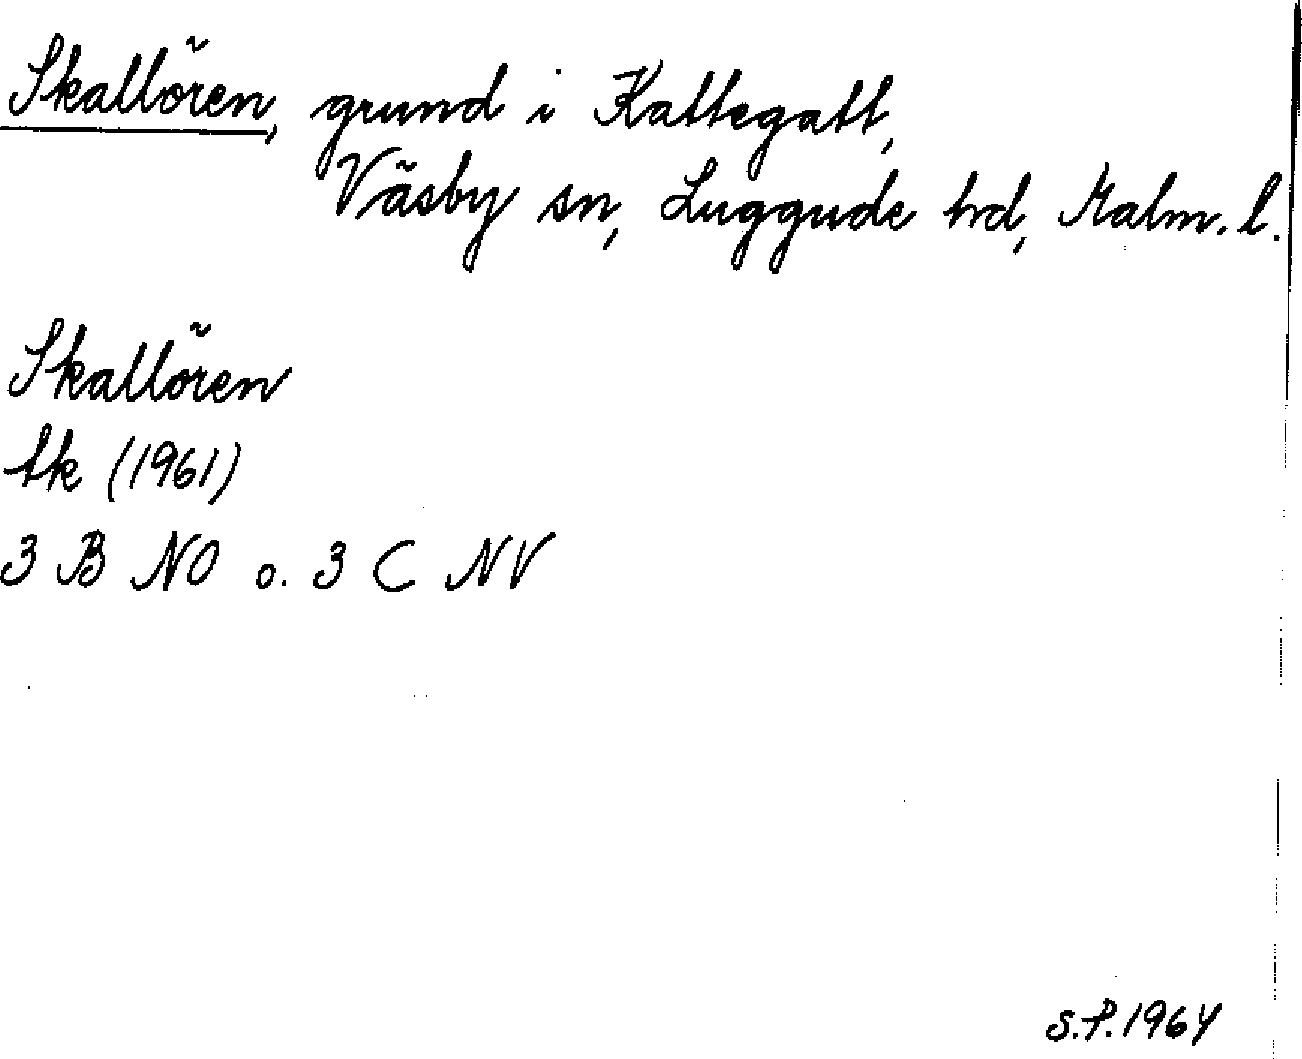 Skallören, grund i Kattegatt,
Väsby sn, Luggude hd, Malm. l.
Skallören
tk (1961)
3 B NO o. 3 C NV
S.P. 1964